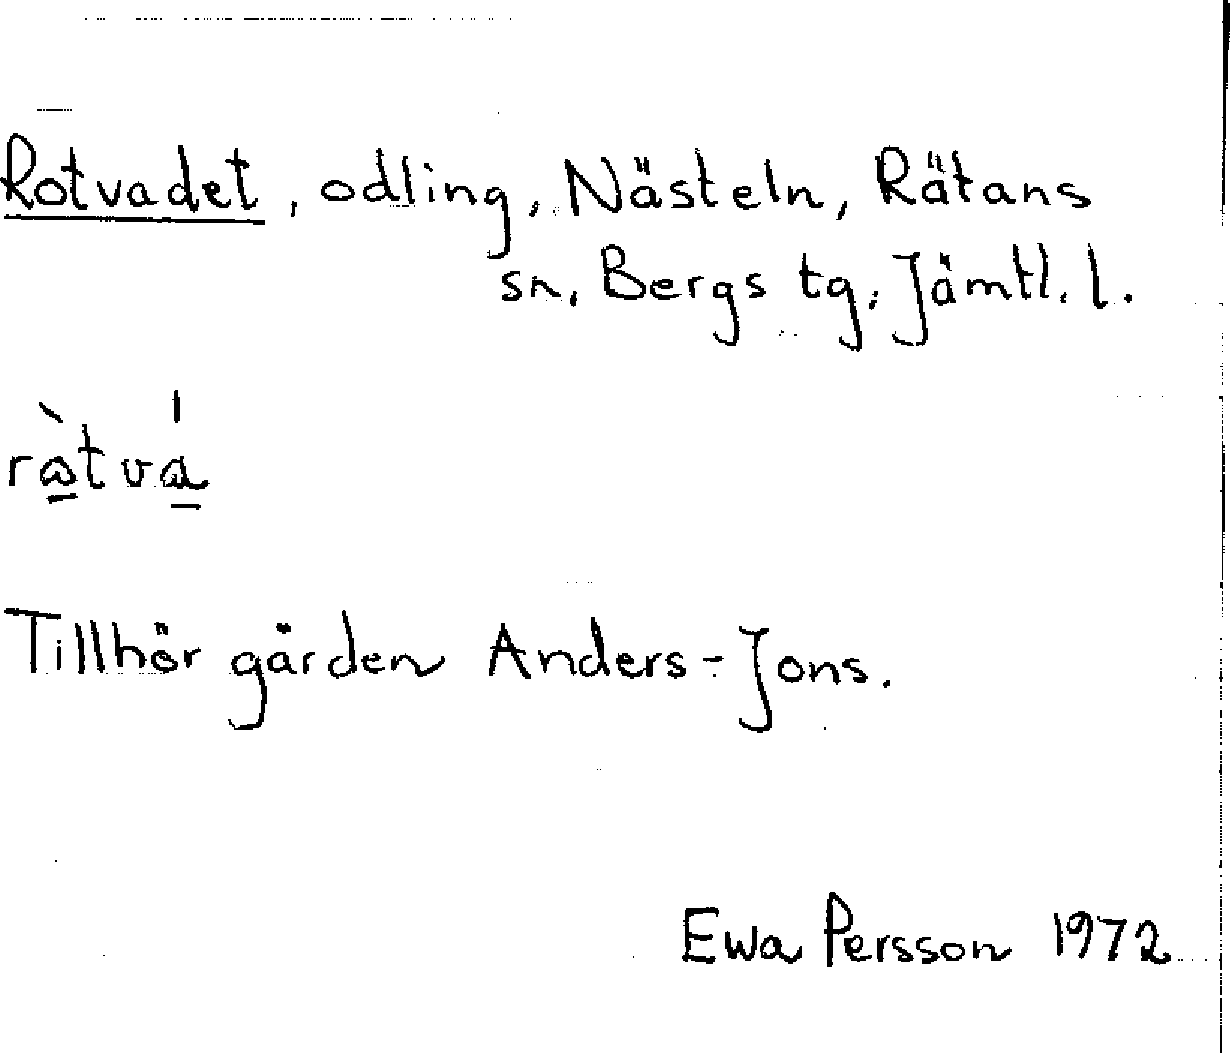 Rotvadet, odling, Nästeln, Rätans
sn, Bergs tg, Jämtl. l.
Tillhör gården Anders-Jons.
Ewa Persson 1972